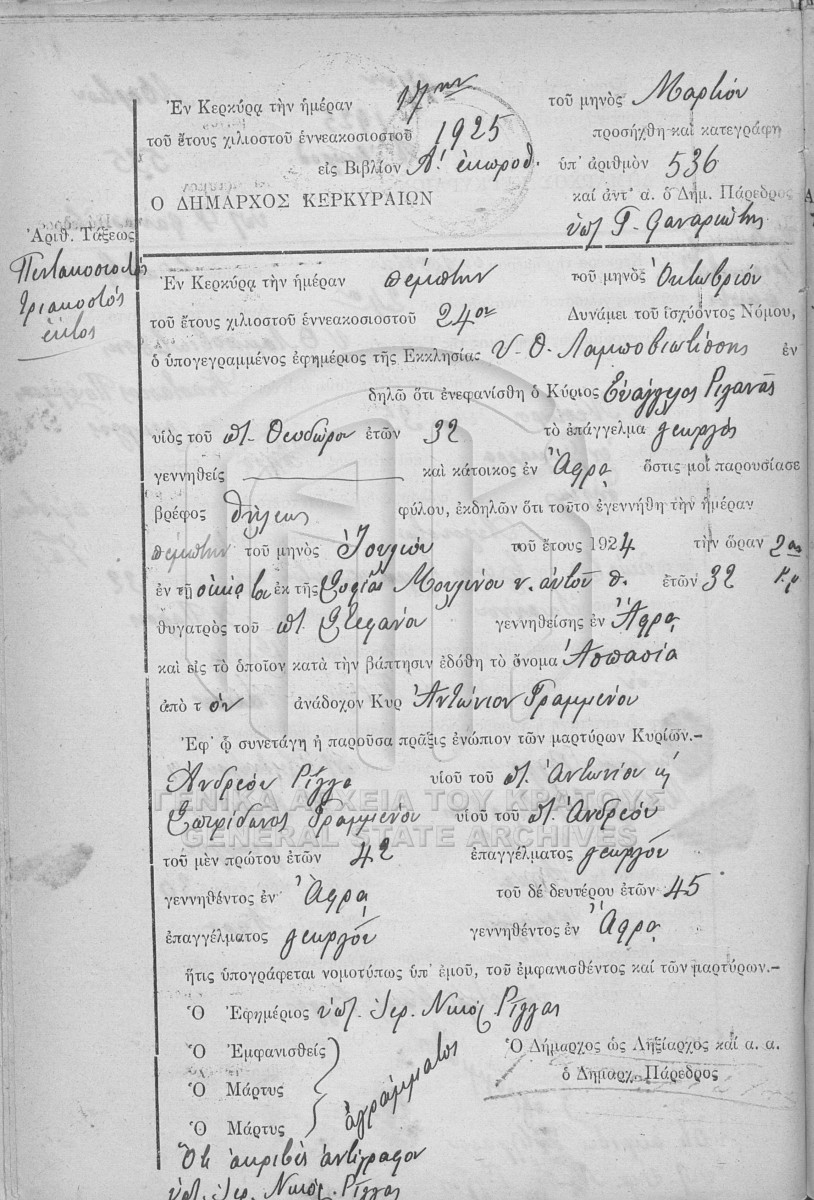 Ἐν Κερκύρᾳ τὴν ἡμέραν 17ην τοῦ μηνὸς Μαρτίου
τοῦ ἔτους χιλιοστοῦ ἐννεακοσιοστοῦ 1925 προσήχθη καὶ κατεγράφη
εἰς Βιβλίον Α! ἐκπροθ. ὑπ' ἀριθμὸν 536
Ο ΔΗΜΑΡΧΟΣ ΚΕΡΚΥΡΑΙΩΝ καὶ ἀντ' α. ὁ Δημ. Πάρεδρος
ὑπ Γ. Φαναριώτης
Ἀριθ. Τάξεως
Πεντακοσιοστός
τριακοστός
ἕκτος
Ἐν Κερκύρᾳ τὴν ἡμέραν πέμπτην τοῦ μηνὸς Ὀκτωβρίου
τοῦ ἔτους χιλιοστοῦ ἐννεακοσιοστοῦ 24ου Δυνάμει τοῦ ἰσχύοντος Νόμου,
ὁ ὑπογεγραμμένος ἐφημέριος τῆς Ἐκκλησίας Υ. Θ. Λαμποβιωτίσσης ἐν
δηλῶ ὅτι ἐνεφανίσθη ὁ Κύριος Εὐάγγελος Ριγανᾶς
υἱὸς τοῦ πτ. Θεοδώρου ἐτῶν 32 τὸ ἐπάγγελμα γεωργὸς
γεννηθεὶς καὶ κάτοικος ἐν Ἄφρᾳ ὅστις μοὶ παρουσίασε
βρέφος θήλεως φύλου, ἐκδηλῶν ὅτι τοῦτο ἐγεννήθη τὴν ἡμέραν
πέμπτην τοῦ μηνὸς Ἰουλίου τοῦ ἔτους 1924 τὴν ὥραν 2αν
ἐν τῇ οἰκίᾳ του ἐκ τῆς Σοφίας Μουζίνου ν. αὐτοῦ θ. ἐτῶν 32 π.μ
θυγατρὸς τοῦ πτ. Στεφάνου γεννηθείσης ἐν Ἄφρᾳ
καὶ εἰς τὸ ὁποῖον κατὰ τὴν βάπτησιν ἐδόθη τὸ ὄνομα Ἀσπασία
ἀπὸ τ ὸν ἀνάδοχον Κυρ Ἀντώνιον Γραμμένου
Ἐφ' ᾧ συνετάγη ἡ παροῦσα πρᾶξις ἐνώπιον τῶν μαρτύρων Κυρίων.—
Ἀνδρέου Ρίγγα υἱοῦ τοῦ πτ. Ἀντωνίου κ
Σπυρίδωνος Γραμμένου υἱοῦ τοῦ πτ. Ἀνδρέου
ΓΕΝΙΚΑ ΑΡΧΕΙΑ ΤΟΥ ΚΡΑΤΟΥΣ
GENERAL STATE ARCHIVES
τοῦ μὲν πρώτου ἐτῶν 42 ἐπαγγέλματος γεωργοῦ
γεννηθέντος ἐν Ἄφρᾳ τοῦ δέ δευτέρου ἐτῶν 45
ἐπαγγέλματος γεωργοῦ γεννηθέντος ἐν Ἄφρᾳ
ἥτις ὑπογράφεται νομοτύπως ὑπ' ἐμοῦ, τοῦ ἐμφανισθέντος καί τῶν μαρτύρων.—
Ὁ Ἐφημέριος ὑπ. Ἱερ. Νικόλ. Ρίγγας
Ὁ Ἐμφανισθείς
Ὁ Μάρτυς
Ὁ Μάρτυς
ἀγράμματοι
Ὁ Δήμαρχος ὡς Ληξίαρχος καί α. α.
ὁ Δημαρχ. Πάρεδρος
Ὅτι ἀκριβὲς ἀντίγραφον
ὑπ. Ἱερ. Νικόλ. Ρίγγας